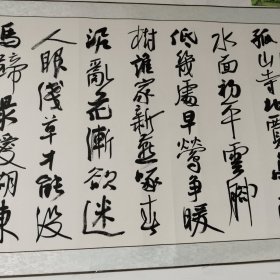 孤山寺北賈亭西
水面初平雲脚
低幾處早鶯争暖
樹誰家新燕啄春
泥亂花漸欲迷
人眼淺草才能没
馬蹄最愛湖東